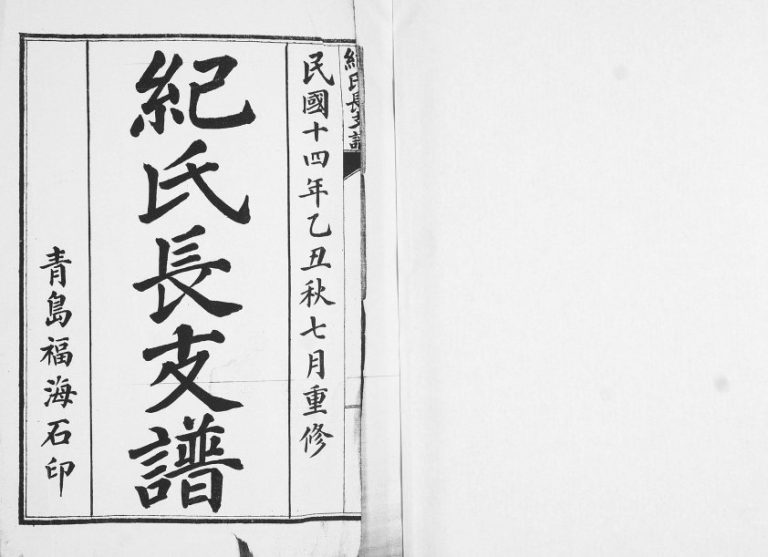 紀氏長支譜
民國十四年乙丑秋七月重修
紀氏長支譜
青島福海石印